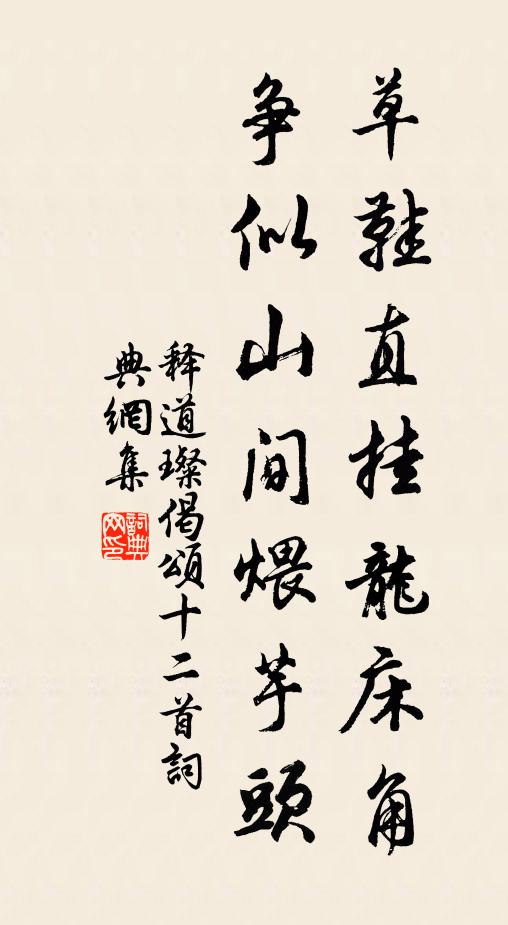 草鞋直挂龍床角
争似山間煨芋頭
释道璨偈頌十二首詞
典網集
詞典
网印